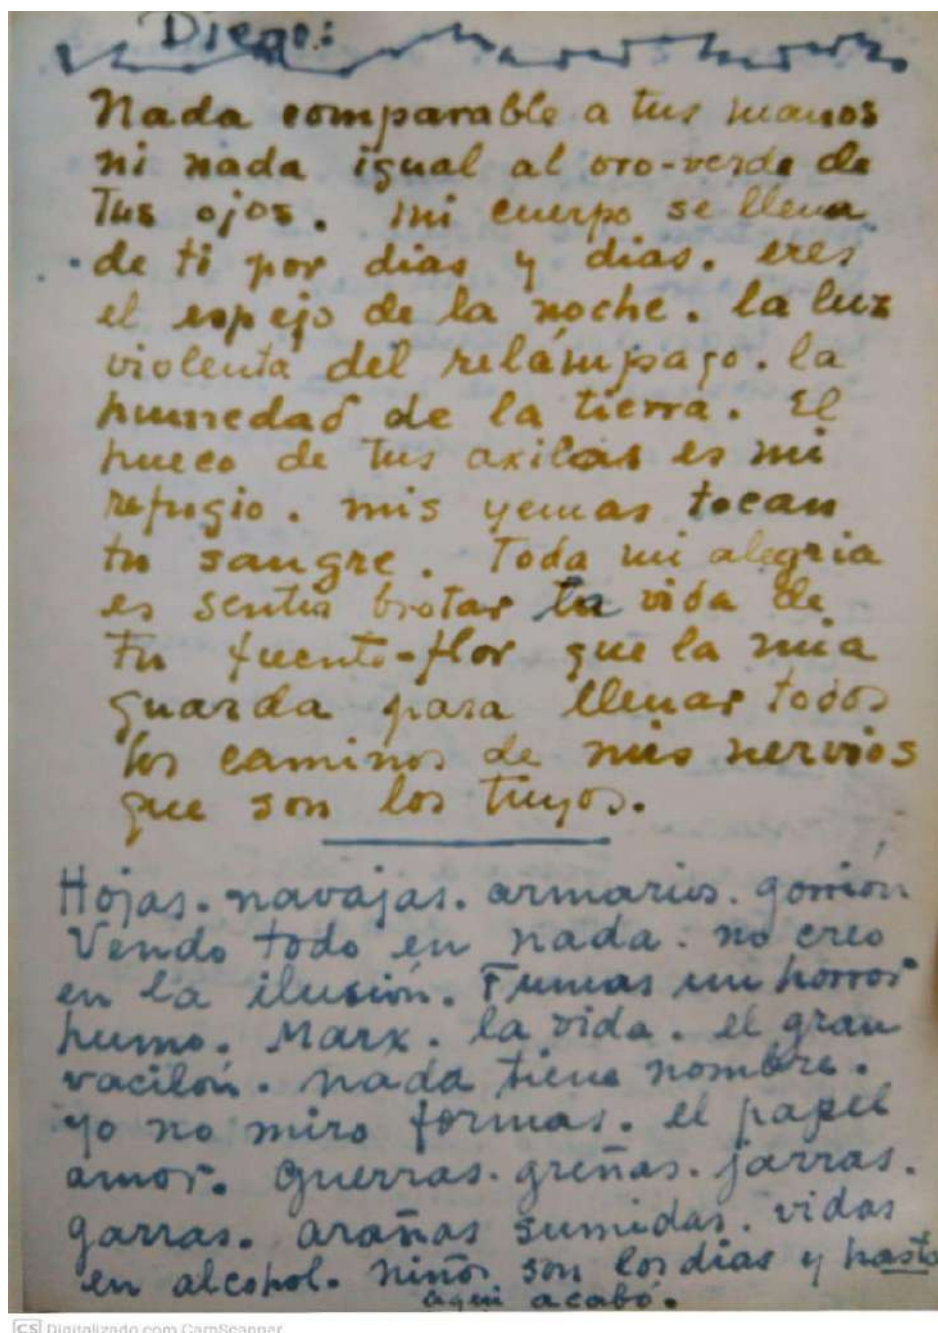 Diego:
Nada comparable a tus manos
ni nada igual al oro-verde de
Tus ojos. mi cuerpo se llena
de ti por dias y dias. eres
el espejo de la noche. la luz
violenta del relámpago. la
humedad de la tierra. El
hueco de tus axilas es mi
refugio. mis yemas tocan
tu sangre. Toda mi alegria
es sentir brotar la vida de
tu fuente-flor que la mia
guarda para llenar todos
los caminos de mis nervios
que son los tuyos.
Hojas. navajas. armarios. gorrión
Vendo todo en nada. no creo
en la ilusión. Fumas un horror
humo. Marx. la vida. el gran
vacilón. nada tiene nombre.
yo no miro formas. el papel
amor. guerras. greñas. jarras.
garras. arañas sumidas. vidas
en alcohol. niños son los dias y hasta
aqui acabó.
CS Digitalizado com CamScanner